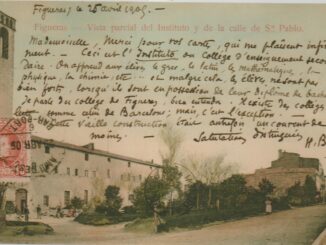 Figueres, le 25 avril 1905.
Figueras — Vista parcial del Instituto y de la calle de Sn Pablo.
Mademoiselle, Merci pour vos carte, qui me plaisent infini-
ment. Ceci est l'Instituto, ou Collège d'enseignement secon-
Daire. On apprend aux élèv. le grec, le latin, mathématique, la
physique, la chimie, etc. — et malgré cela les élèves
bien forts, lorsqu'ils sont en possession de leur Diplôme de bache
Je parle du collège de Figueras, bien entendu. Il existe des collèges
comme celui de Barcelone; mais, c'est l'exception. —
Cette vaste construction était autrefois un couvent de
moines.
Salutation distinguées
H. B